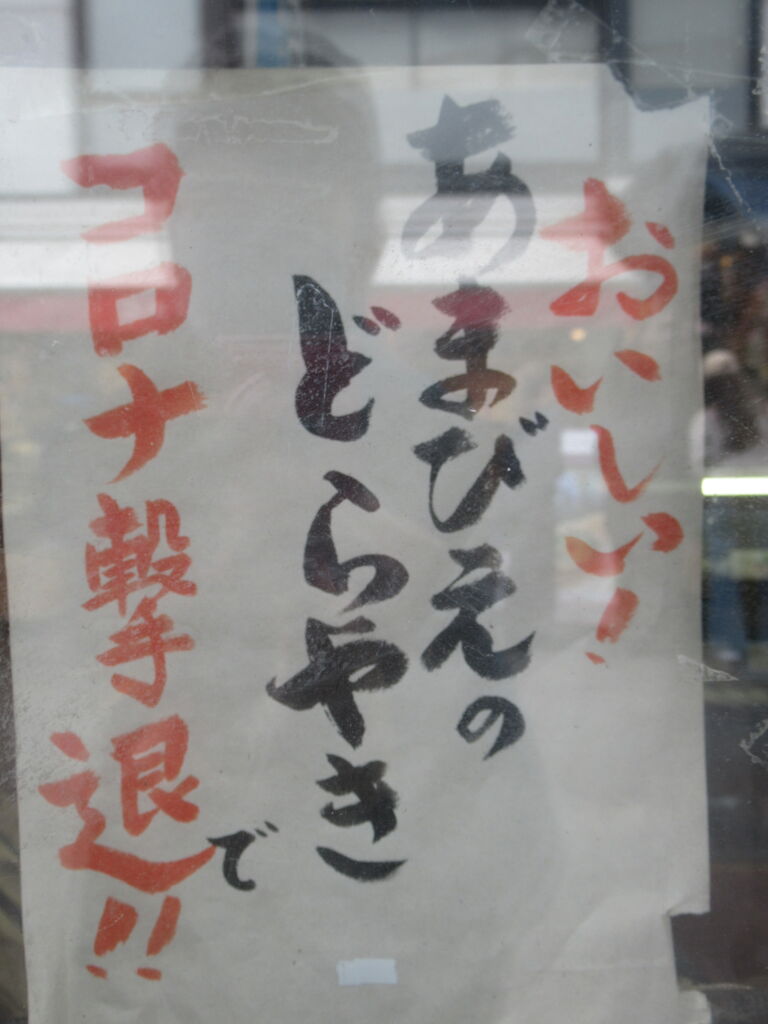 おいしい!
あまびえの
どらやきで
コロナ撃退!!